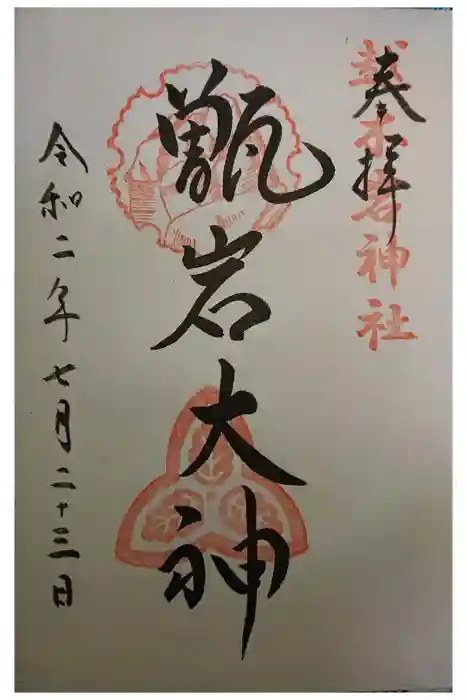 奉拝
越木岩神社
甑岩大神
令和二年七月二十三日